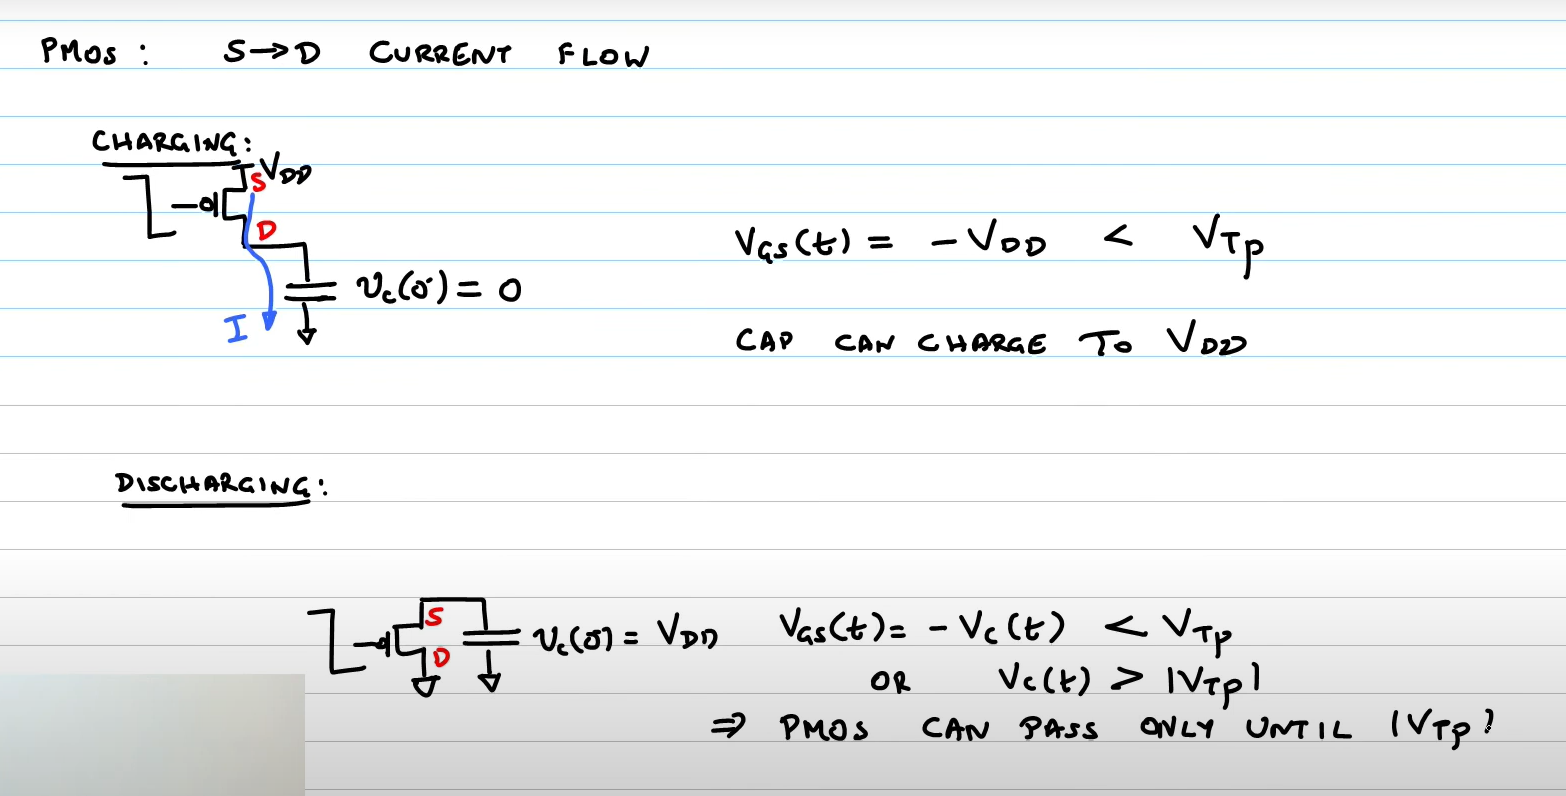 PMOS : S→D CURRENT FLOW
CHARGING:
VDD
S
D
I
vc(0⁻) = 0
VGS(t) = -VDD < VTp
CAP CAN CHARGE TO VDD
DISCHARGING:
S
D
vc(0⁻) = VDD
VGS(t) = - Vc(t) < VTp
OR Vc(t) > |VTp|
⇒ PMOS CAN PASS ONLY UNTIL |VTp|